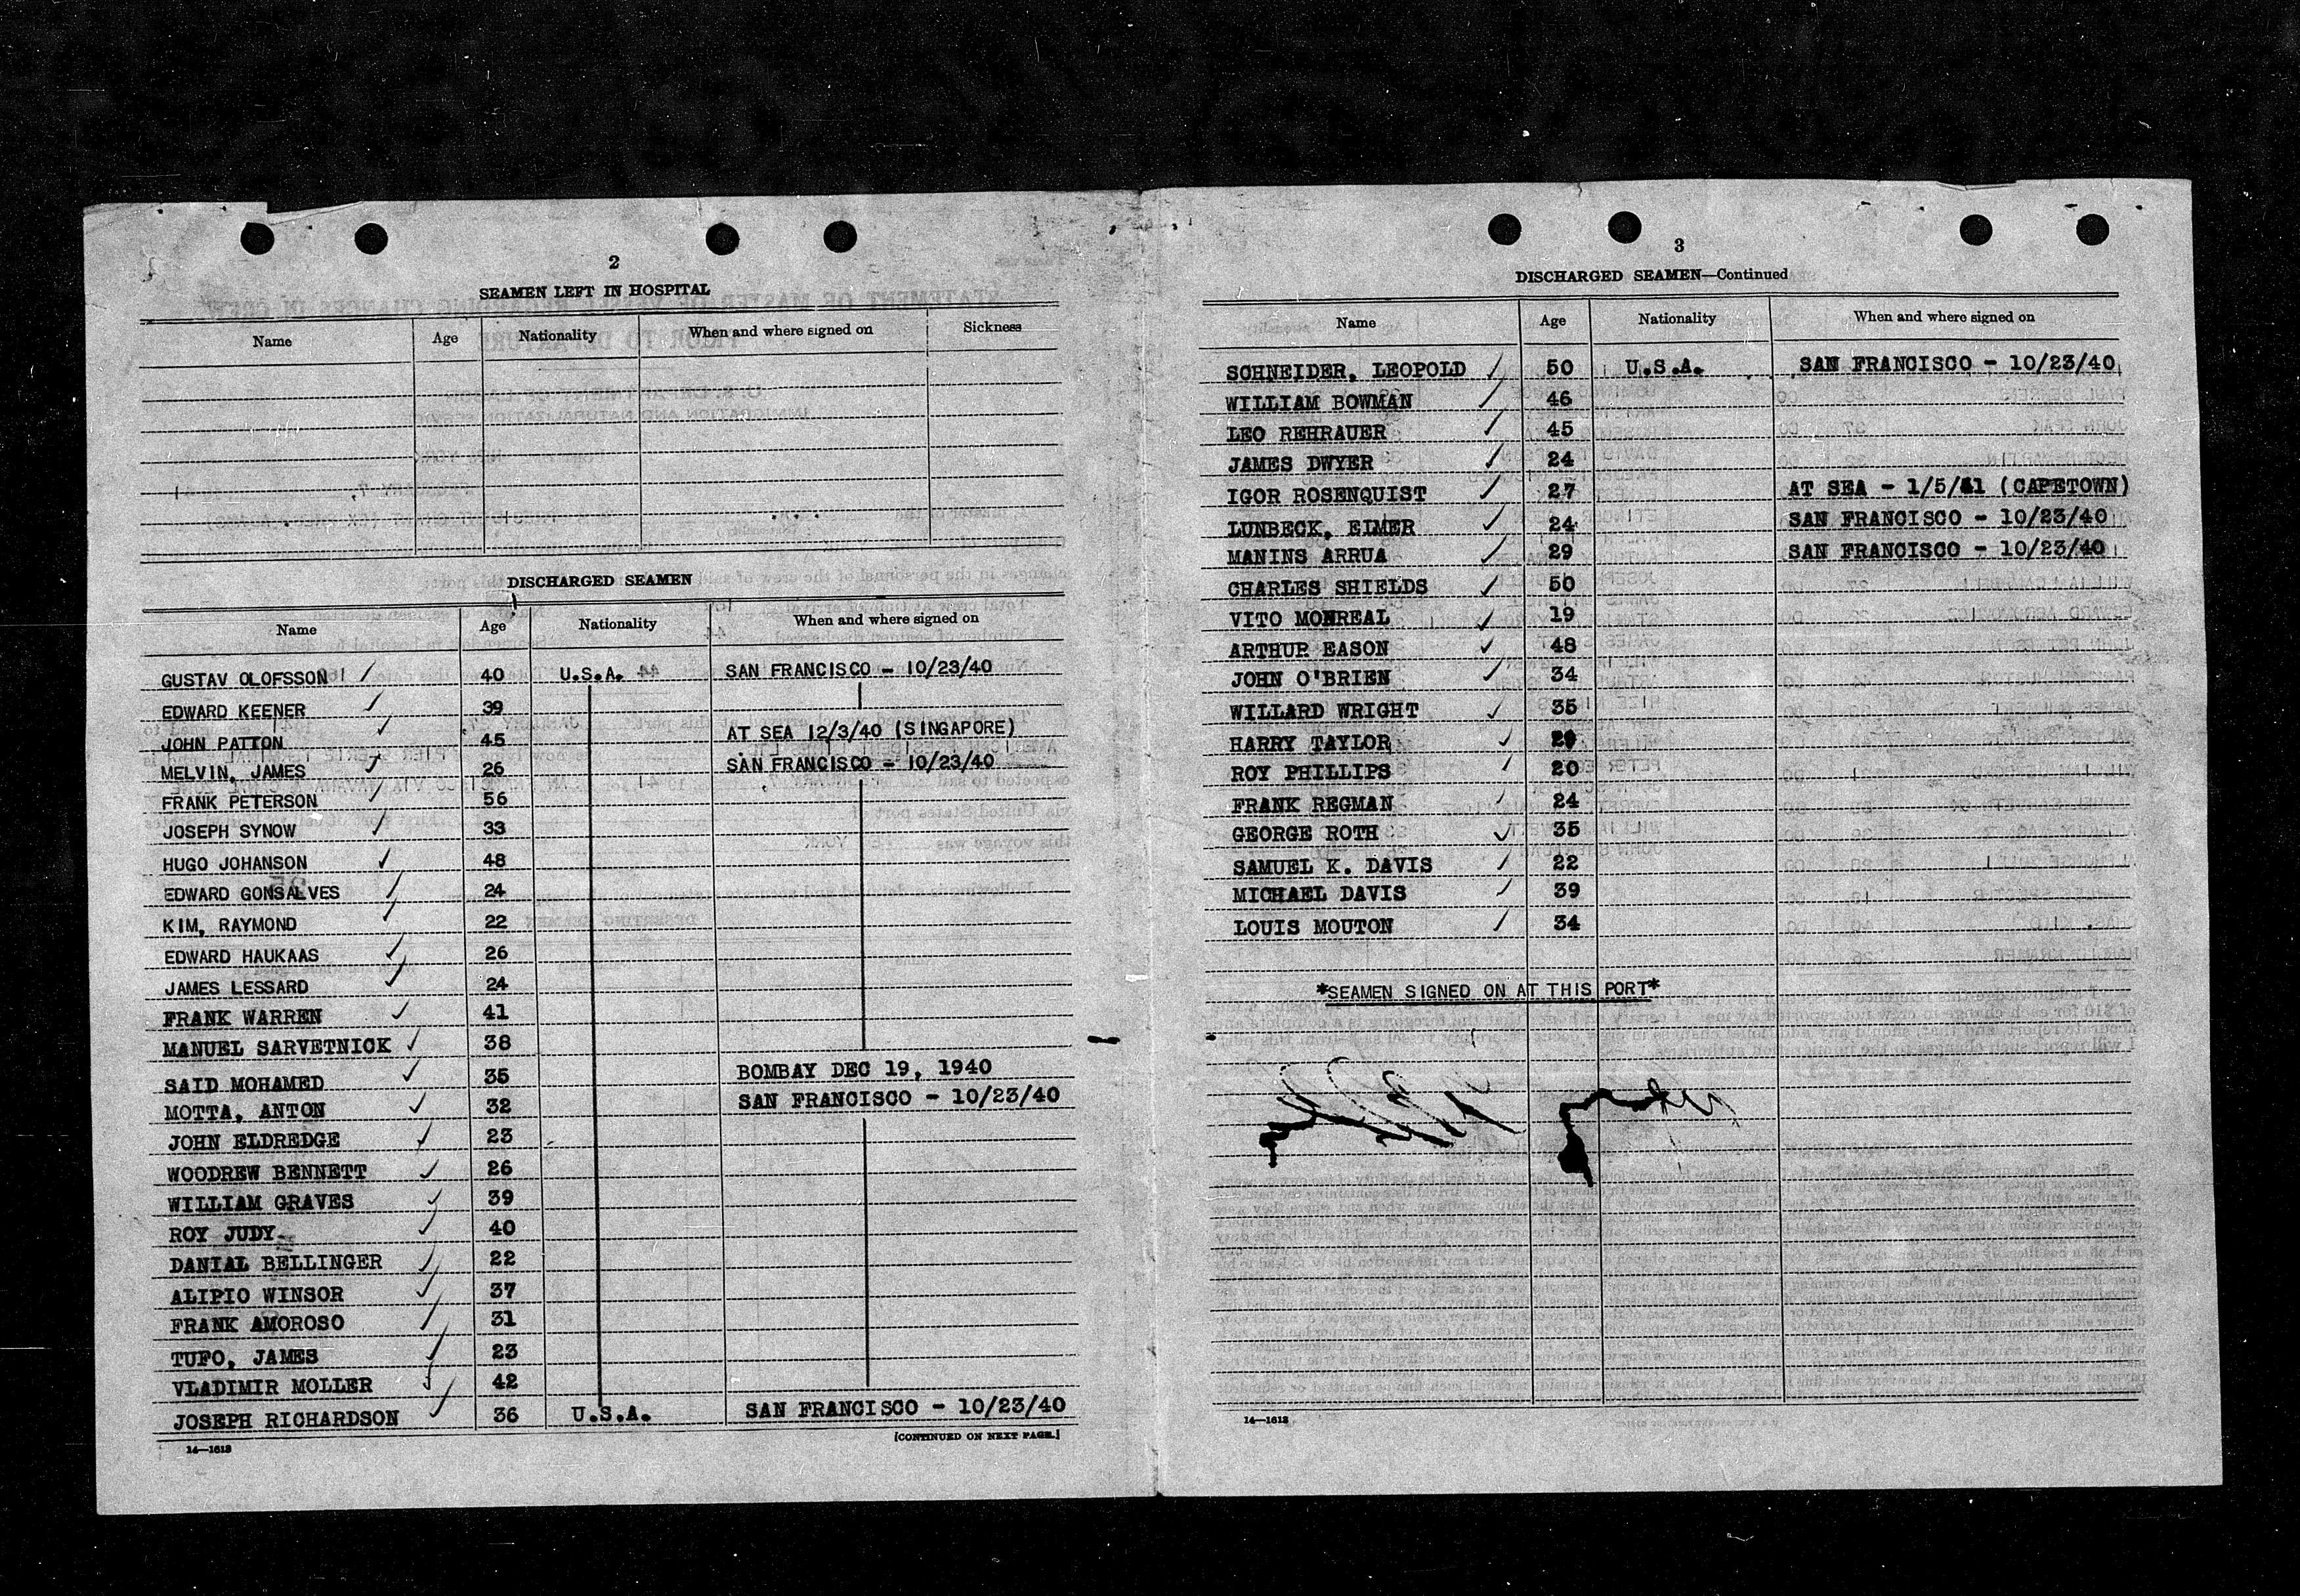 2
SEAMEN LEFT IN HOSPITAL
Name Age Nationality When and where signed on Sickness
DISCHARGED SEAMEN
Name Age Nationality When and where signed on
GUSTAV OLOFSSON 40 U.S.A. 44 SAN FRANCISCO - 10/23/40
EDWARD KEENER 39
JOHN PATTON 45 AT SEA 12/3/40 (SINGAPORE)
MELVIN, JAMES 26 SAN FRANCISCO - 10/23/40
FRANK PETERSON 56
JOSEPH SYNOW 33
HUGO JOHANSON 48
EDWARD GONSALVES 24
KIM, RAYMOND 22
EDWARD HAUKAAS 26
JAMES LESSARD 24
FRANK WARREN 41
MANUEL SARVETNICK 38
SAID MOHAMED 35 BOMBAY DEC 19, 1940
MOTTA, ANTON 32 SAN FRANCISCO - 10/23/40
JOHN ELDREDGE 23
WOODREW BENNETT 26
WILLIAM GRAVES 39
ROY JUDY 40
DANIAL BELLINGER 22
ALIPIO WINSOR 37
FRANK AMOROSO 31
TUFO, JAMES 23
VLADIMIR MOLLER 42
JOSEPH RICHARDSON 36 U.S.A. SAN FRANCISCO - 10/23/40
14—1613 [CONTINUED ON NEXT PAGE.]
3
DISCHARGED SEAMEN—Continued
Name Age Nationality When and where signed on
SCHNEIDER, LEOPOLD 50 U.S.A. SAN FRANCISCO - 10/23/40
WILLIAM BOWMAN 46
LEO REHRAUER 45
JAMES DWYER 24
IGOR ROSENQUIST 27 AT SEA - 1/5/41 (CAPETOWN)
LUNBECK, EIMER 24 SAN FRANCISCO - 10/23/40
MANINS ARRUA 29 SAN FRANCISCO - 10/23/40
CHARLES SHIELDS 50
VITO MONREAL 19
ARTHUR EASON 48
JOHN O'BRIEN 34
WILLARD WRIGHT 35
HARRY TAYLOR
ROY PHILLIPS 20
FRANK REGMAN 24
GEORGE ROTH 35
SAMUEL K. DAVIS 22
MICHAEL DAVIS 39
LOUIS MOUTON 34
*SEAMEN SIGNED ON AT THIS PORT*
14—1613